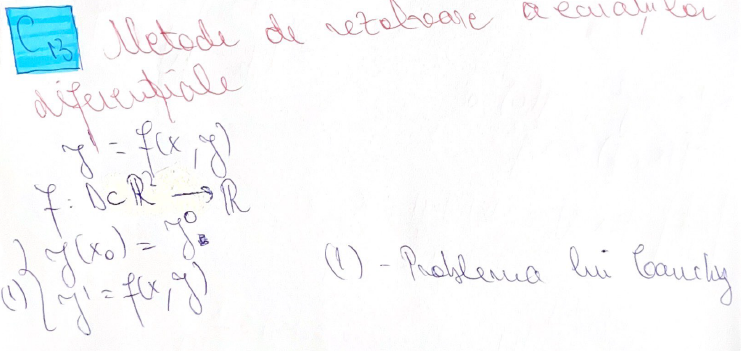 C13 Metode de rezolvare a ecuațiilor
diferențiale
y' = f(x, y)
f: D⊂ℝ² → ℝ
{ y(x₀) = y⁰
(1) { y' = f(x, y) (1) - Problema lui Cauchy